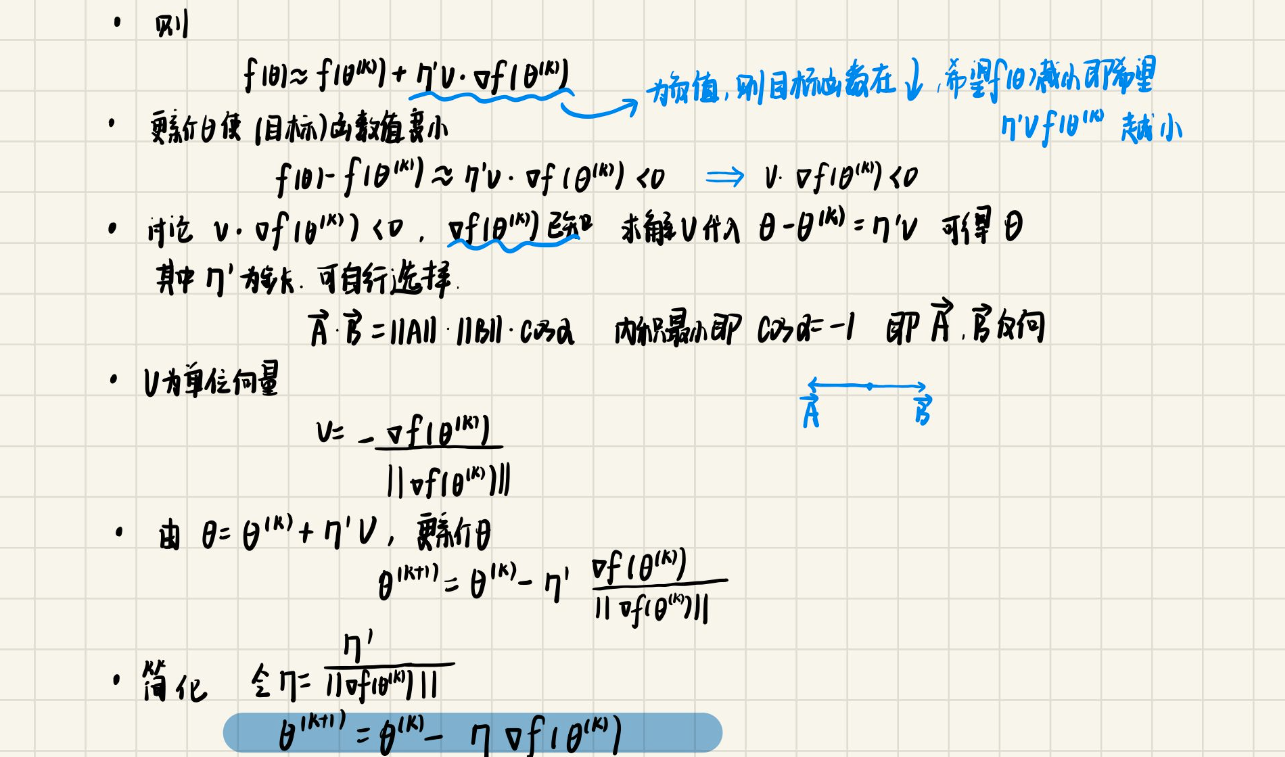 • 则
f(θ)≈f(θ^(k))+η'v·∇f(θ^(k))
为负值,则目标函数在↓,希望f(θ)越小即希望
η'v f(θ^(k)) 越小
• 更新θ使(目标)函数值变小
f(θ)-f(θ^(k))≈η'v·∇f(θ^(k))<0 ⟹ v·∇f(θ^(k))<0
• 讨论 v·∇f(θ^(k))<0, ∇f(θ^(k))已知 求解v代入 θ-θ^(k)=η'v 可得θ
其中η'为步长.可自行选择.
A⃗·B⃗=||A||·||B||·cosα 内积最小即 cosα=-1 即 A⃗,B⃗反向
• v为单位向量
A⃗ B⃗
v= - ∇f(θ^(k)) / ||∇f(θ^(k))||
• 由 θ=θ^(k)+η'v, 更新θ
θ^(k+1)=θ^(k)-η' ∇f(θ^(k)) / ||∇f(θ^(k))||
• 简化 令η= η' / ||∇f(θ^(k))||
θ^(k+1)=θ^(k)- η∇f(θ^(k))